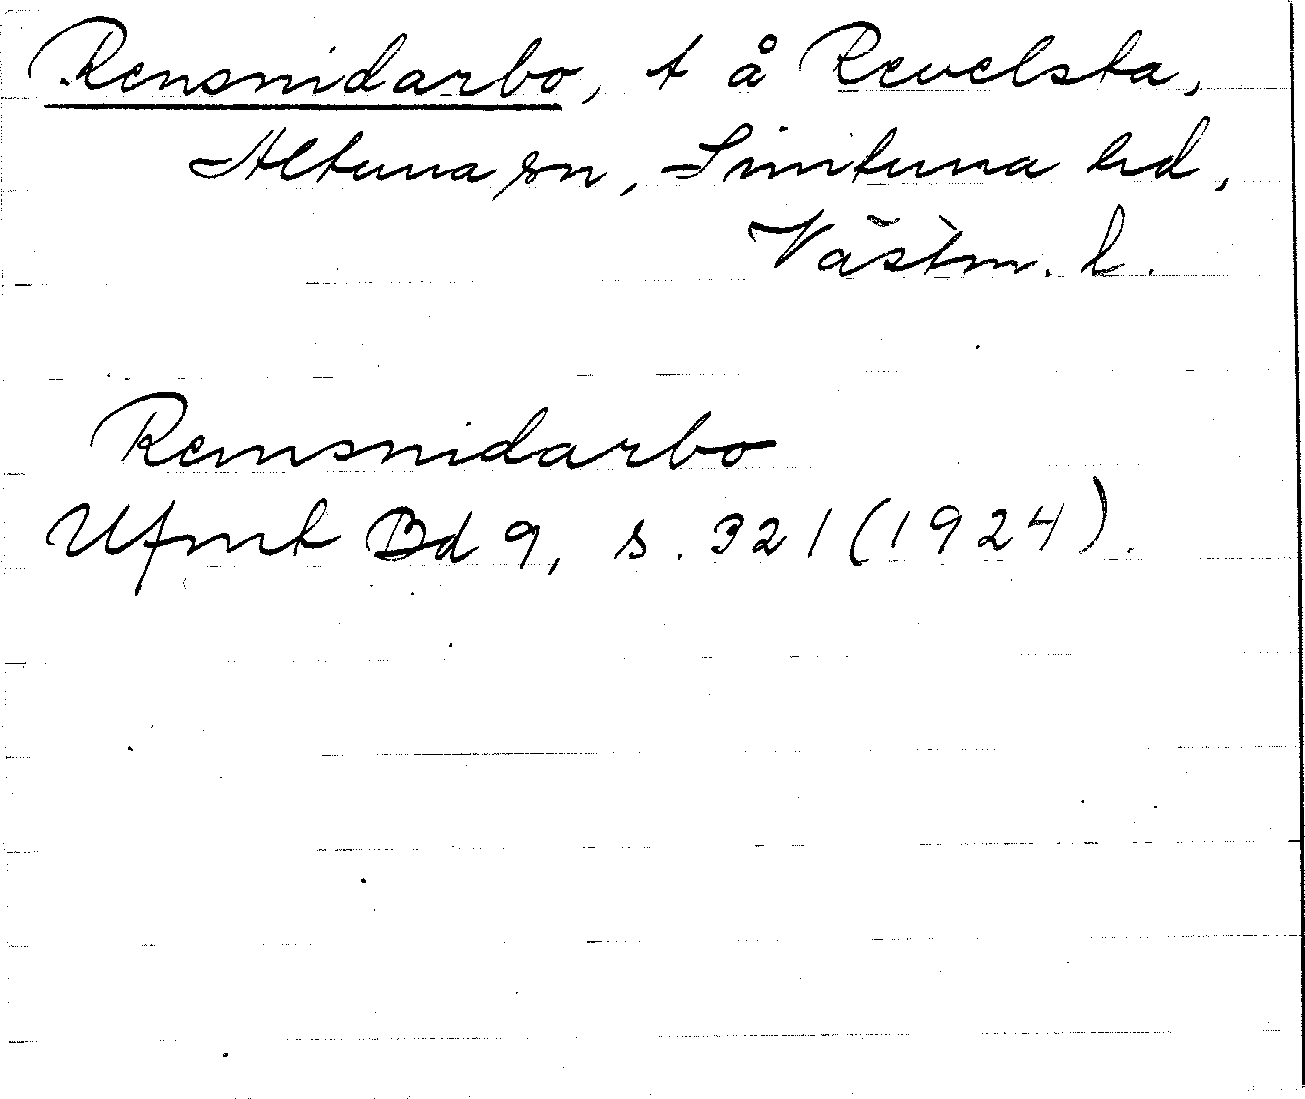 Rensnidarbo, t å Revelsta,
Altuna sn, Simtuna hd,
Västm. l.
Remsnidarbo
Ufmt Bd 9, s. 321 (1924).